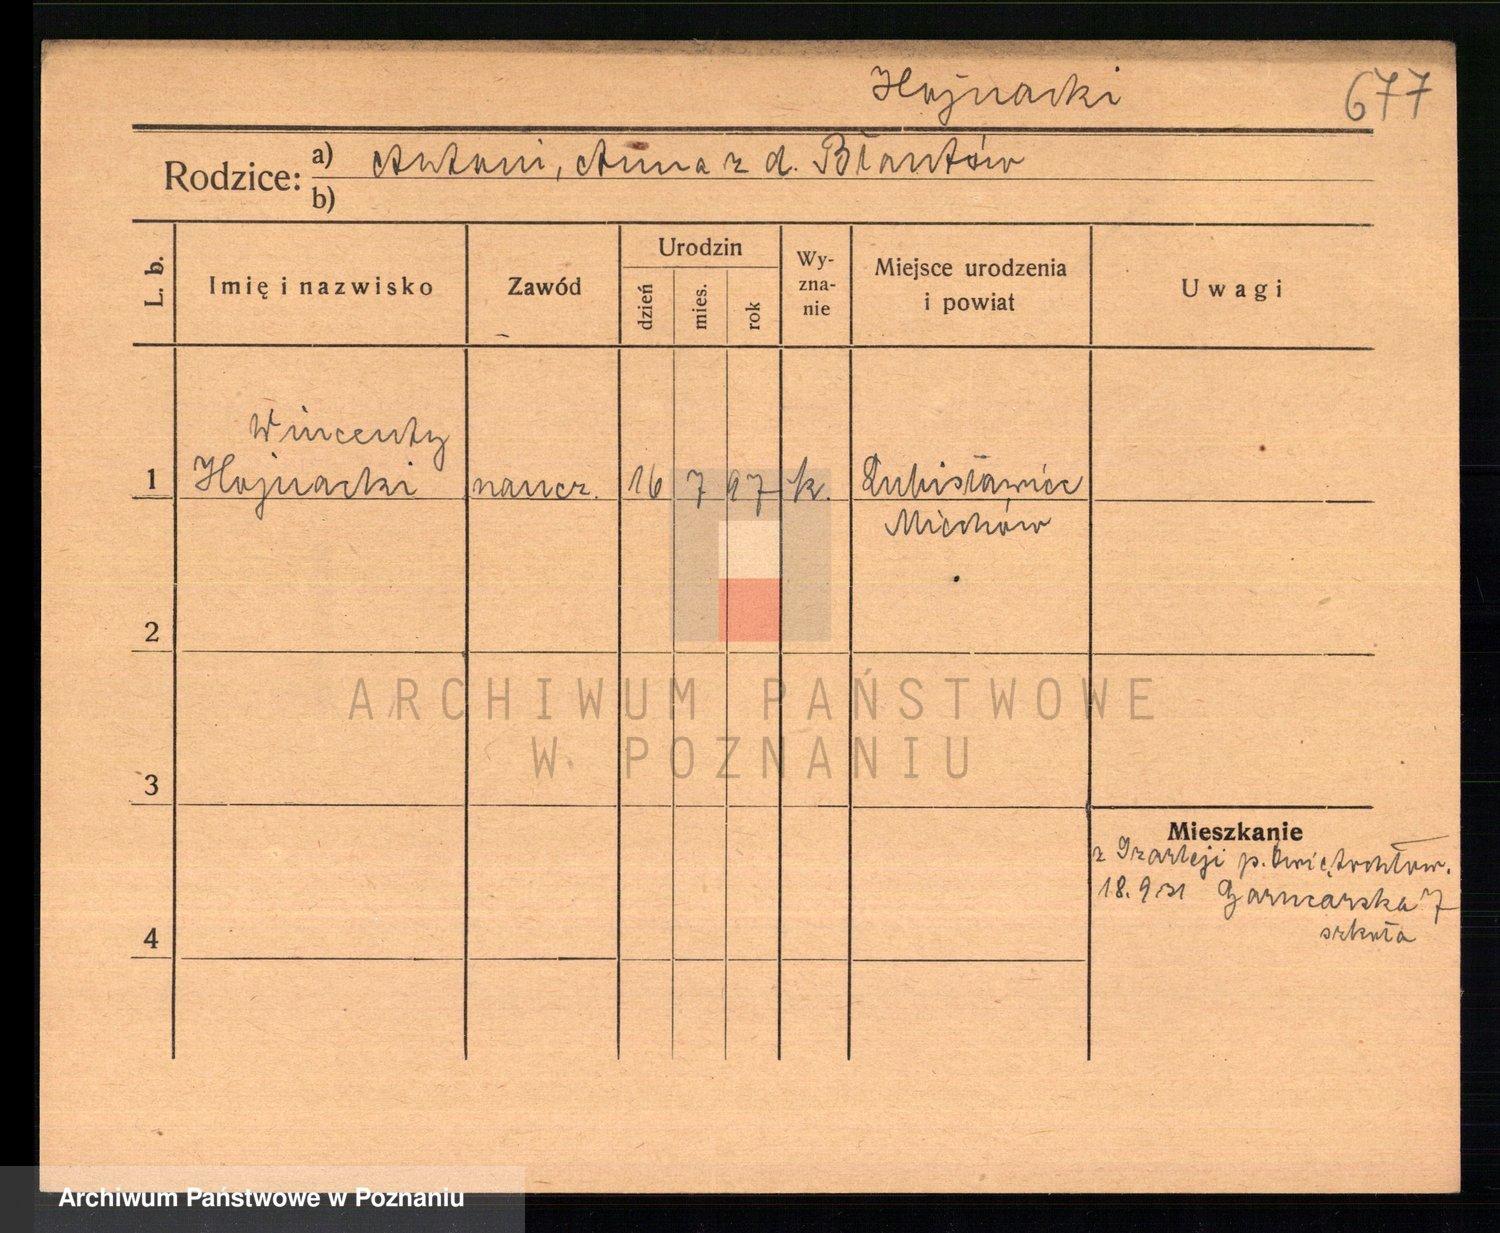 Hojnacki 677
Rodzice: a) Antoni, Anna z d. Błautów
b)
L. b.
Imię i nazwisko
Zawód
Urodzin
dzień
mies.
rok
Wy-
zna-
nie
Miejsce urodzenia
i powiat
Uwagi
Wincenty
1 Hojnacki naucz. 16 7 97 k. Lubisławice
Miechów
2
ARCHIWUM PAŃSTWOWE
W POZNANIU
3
Mieszkanie
z p. Świętochłow.
18.9.31 Garncarska 7
szkoła
4
Archiwum Państwowe w Poznaniu